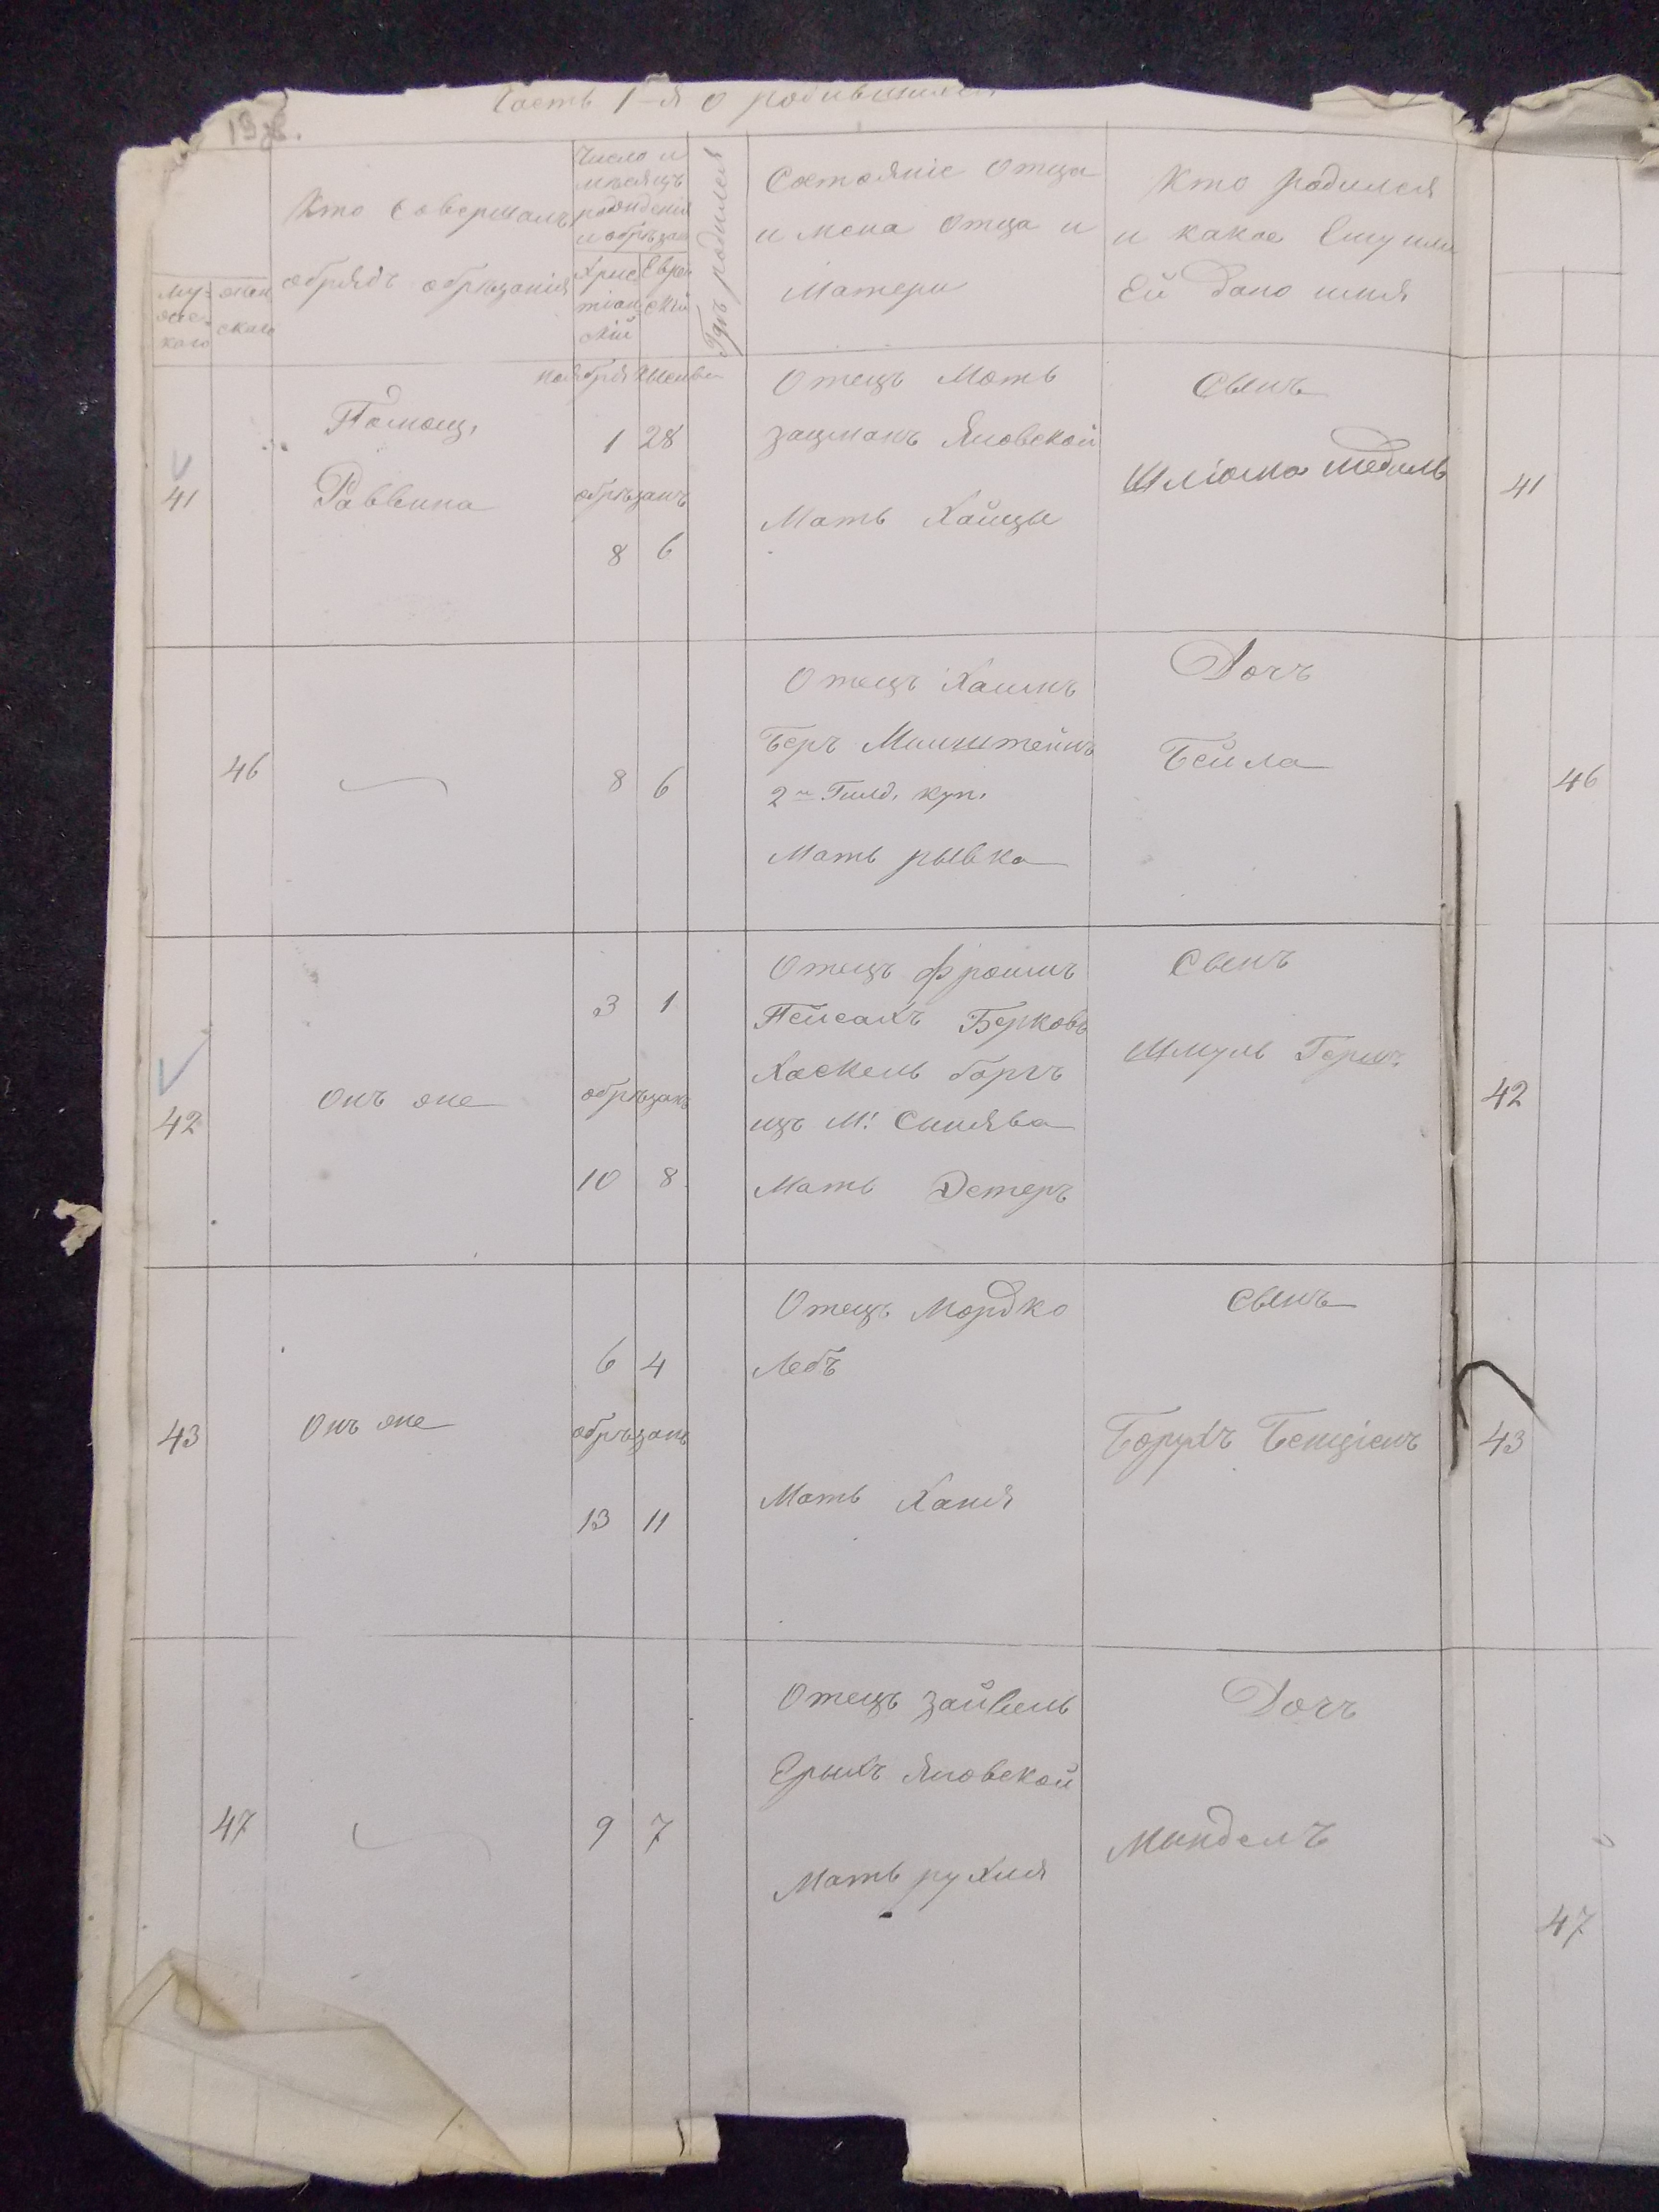 Часть 1-я о родившихся
Кто совершалъ
обрядъ обрѣзанія
Число и
мѣсяцъ
рожденія
и обрѣзан
Хрис
тіан
скій
Еврей
скій
Гдѣ родился
Состояніе Отца
имена Отца и
Матери
Кто родился
и какое Ему или
Ей дано имя
муж
ес
каго
жен
скаго
41
Помощ.
Раввина
ноября
1 28
обрѣзанъ
8 6
Отецъ Моть
зацманъ Яновской
Мать Хайцы
Сынъ
Шліома
41
46
8 6
Отецъ Хаимъ
Беръ
2й Гилд. куп.
Мать рывка
Дочъ
Бейла
46
42
Онъ же
3 1
обрѣзанъ
10 8
Отецъ Фроимъ
Пейсахъ Берковъ
Хаскель
изъ М. Синява
Мать
Сынъ
Шмуль Герш.
42
43
Онъ же
6 4
обрѣзанъ
13 11
Отецъ Мордко
Лебъ
Мать Ханя
Сынъ
Борухъ Бенціенъ
43
47
9 7
Отецъ Зайвель
Ерыхъ Яновской
Мать рухля
Дочъ
Миндель
47